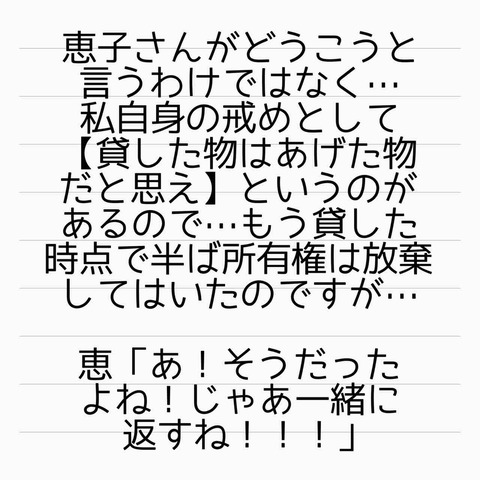 恵子さんがどうこうと
言うわけではなく…
私自身の戒めとして
【貸した物はあげた物
だと思え】というのが
あるので…もう貸した
時点で半ば所有権は放棄
してはいたのですが…
恵「あ！そうだった
よね！じゃあ一緒に
返すね！！！」